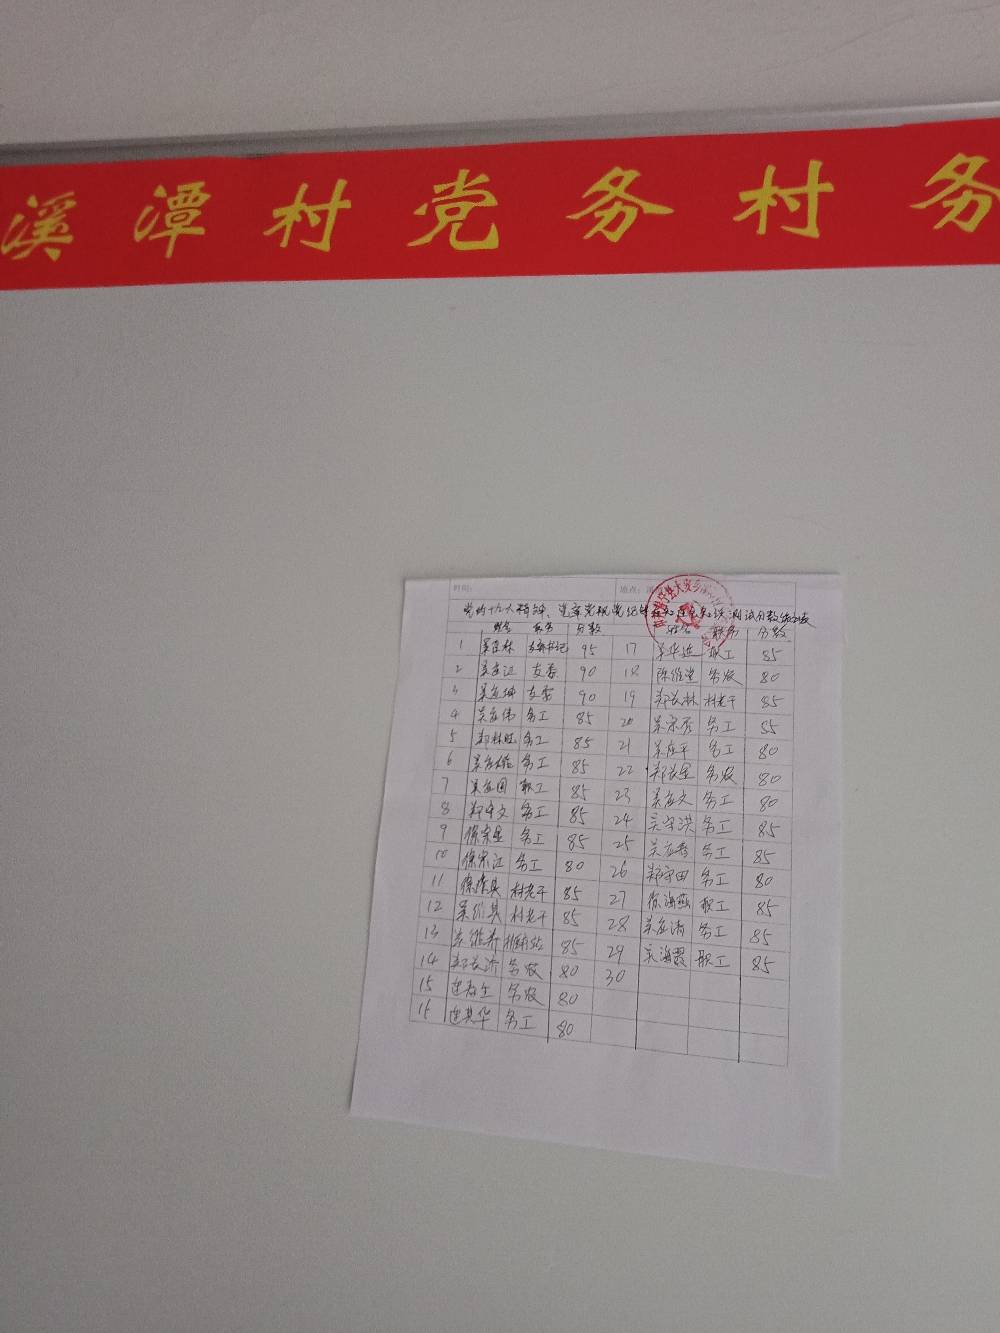 溪潭村党务村务
时间: 地点:
党的十九大精神、党章党规党纪 知识测试分数
姓名 职务 分数 姓名 职务 分数
1 支部书记 95 17 吴华进 职工 85
2 支委 90 18 陈维 务农 80
3 吴应坤 支委 90 19 郑长林 村老干 85
4 吴应伟 务工 85 20 吴宗秀 务工 85
5 郑林旺 务工 85 21 吴应平 务工 80
6 务工 85 22 郑长星 务农 80
7 吴应国 职工 85 23 吴应文 务工 80
8 郑守文 务工 85 24 吴守洪 务工 85
9 徐宗星 务工 85 25 务工 85
10 徐宗江 务工 80 26 郑守田 务工 80
11 村老干 85 27 徐海燕 职工 85
12 吴维其 村老干 85 28 吴应清 务工 85
13 85 29 吴海霞 职工 85
14 郑长济 务农 80 30
15 务农 80
16 连其华 务工 80